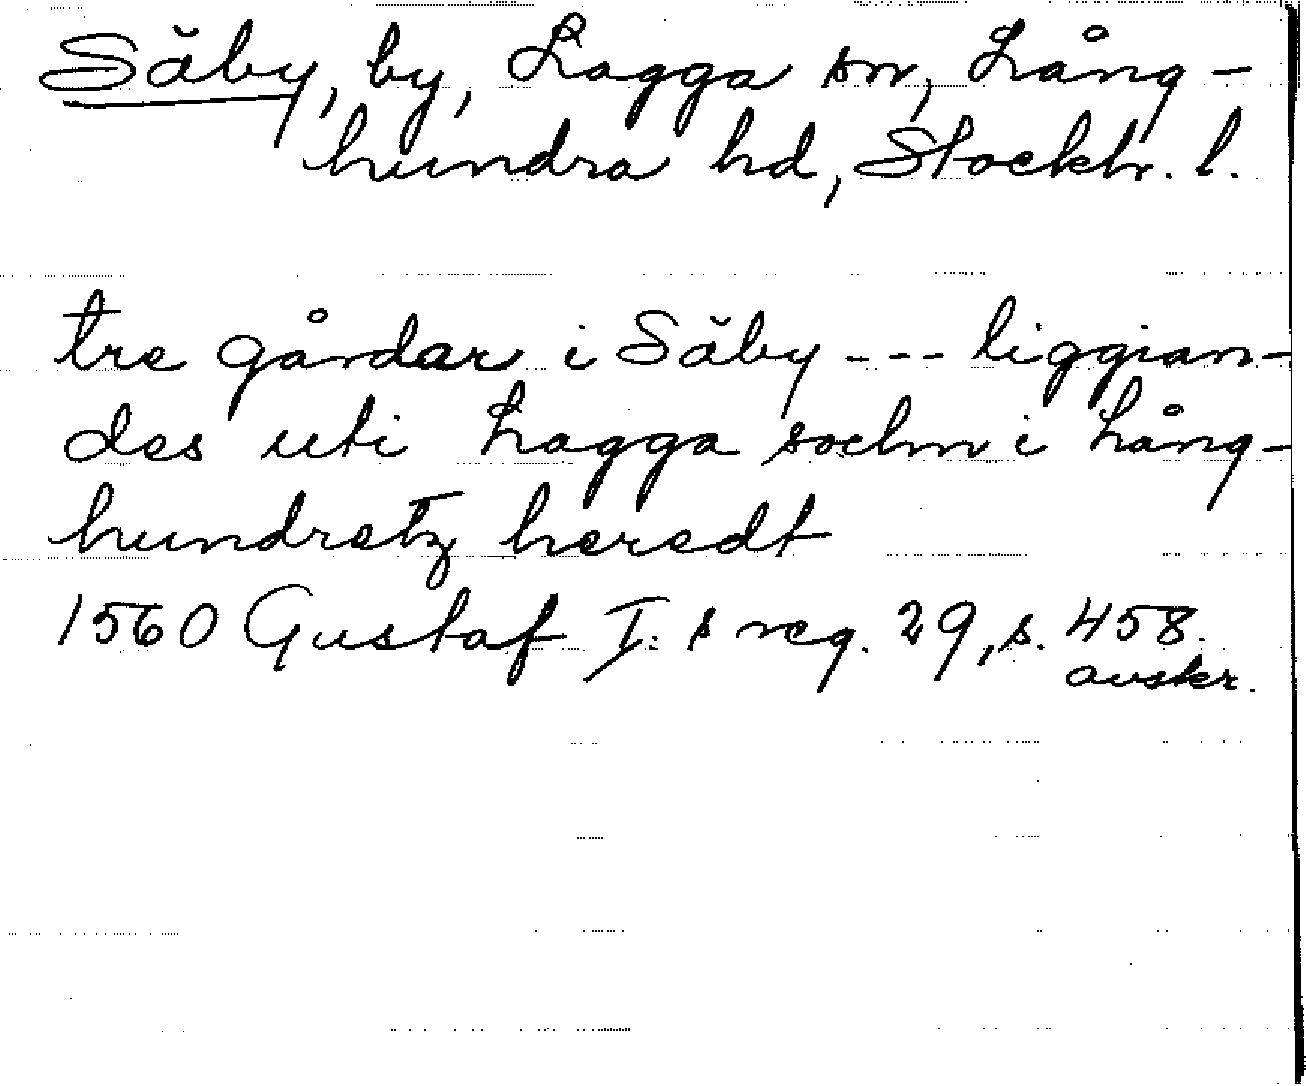 Säby, by, Lagga sn, Lång-
hundra hd, Stockh. l.
tre gårdar i Säby --- liggian-
des uti Lagga sochn i Lång-
hundretz heredt
1560 Gustaf I:s reg. 29, s. 458.
avskr.